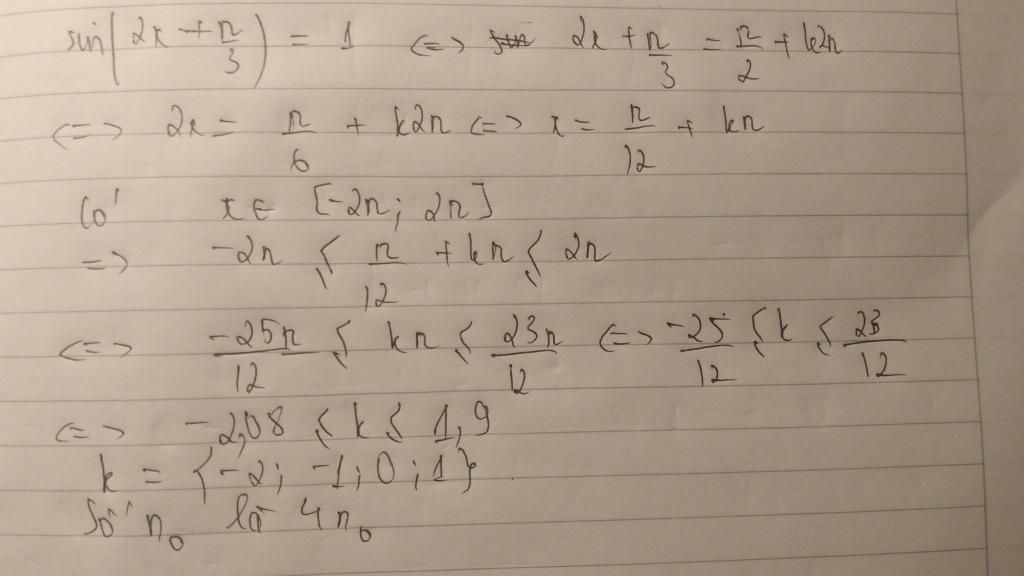 sin(2x + π/3) = 1 <=> 2x + π/3 = π/2 + k2π
<=> 2x = π/6 + k2π <=> x = π/12 + kπ
Có x ∈ [-2π; 2π]
=> -2π ≤ π/12 + kπ ≤ 2π
<=> -25π/12 ≤ kπ ≤ 23π/12 <=> -25/12 ≤ k ≤ 23/12
<=> -2,08 ≤ k ≤ 1,9
k = {-2; -1; 0; 1}
Số n₀ là 4 n₀